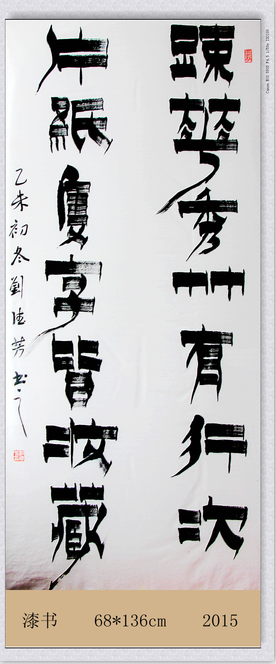 踈華秀艸有行次
片紙隻字皆收藏
乙未初冬劉芳书之
漆书 68*136cm 2015